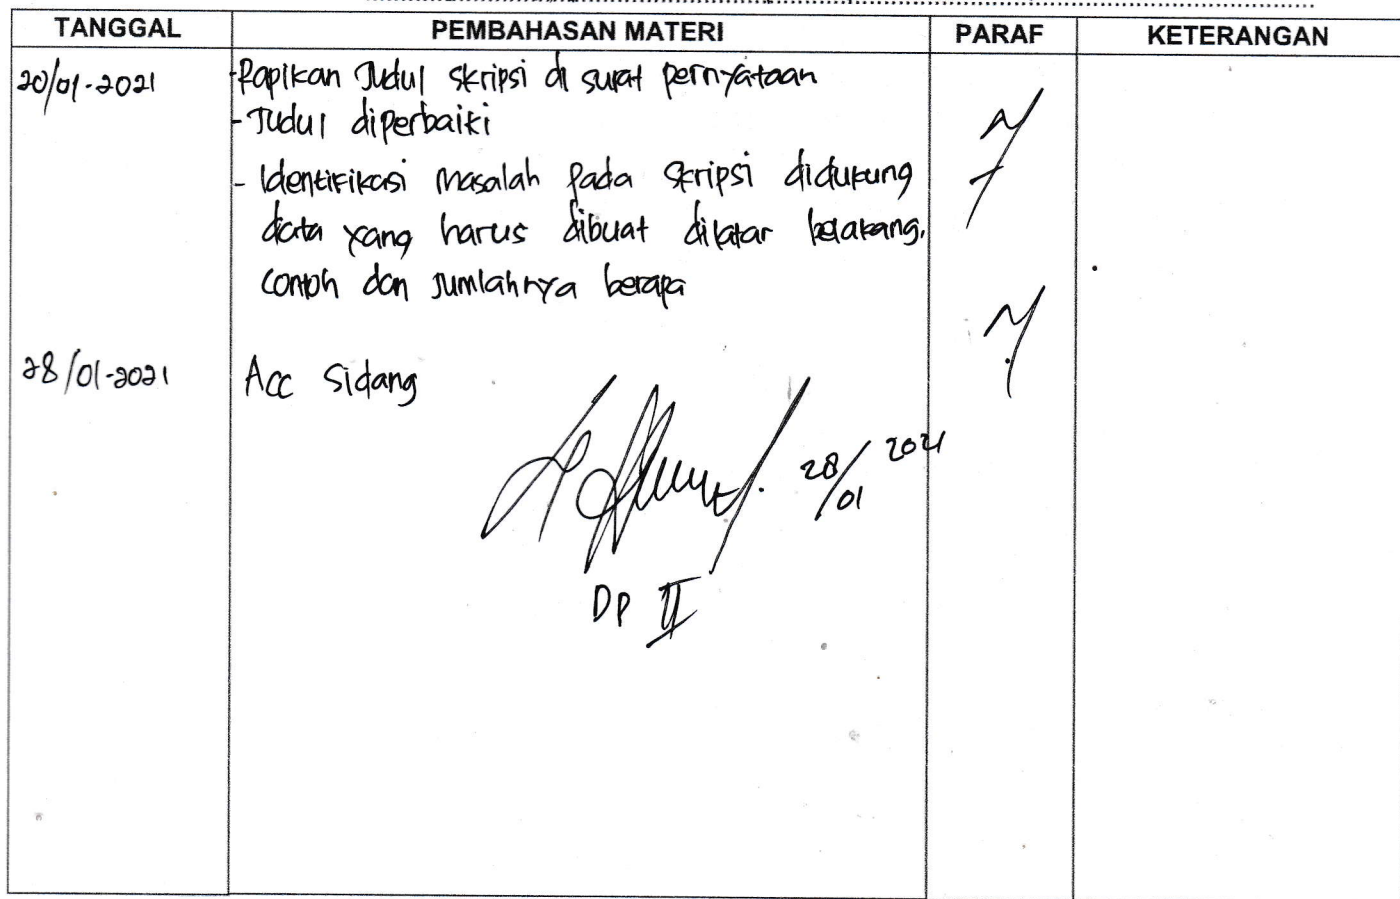 TANGGAL PEMBAHASAN MATERI PARAF KETERANGAN
20/01-2021 -Rapikan Judul skripsi di surat pernyataan
- Judul diperbaiki
- Identifikasi Masalah pada skripsi didukung
data yang harus dibuat dilatar belakang,
contoh dan Jumlahnya berapa
28/01-2021 Acc Sidang
28/01 2021
DP II